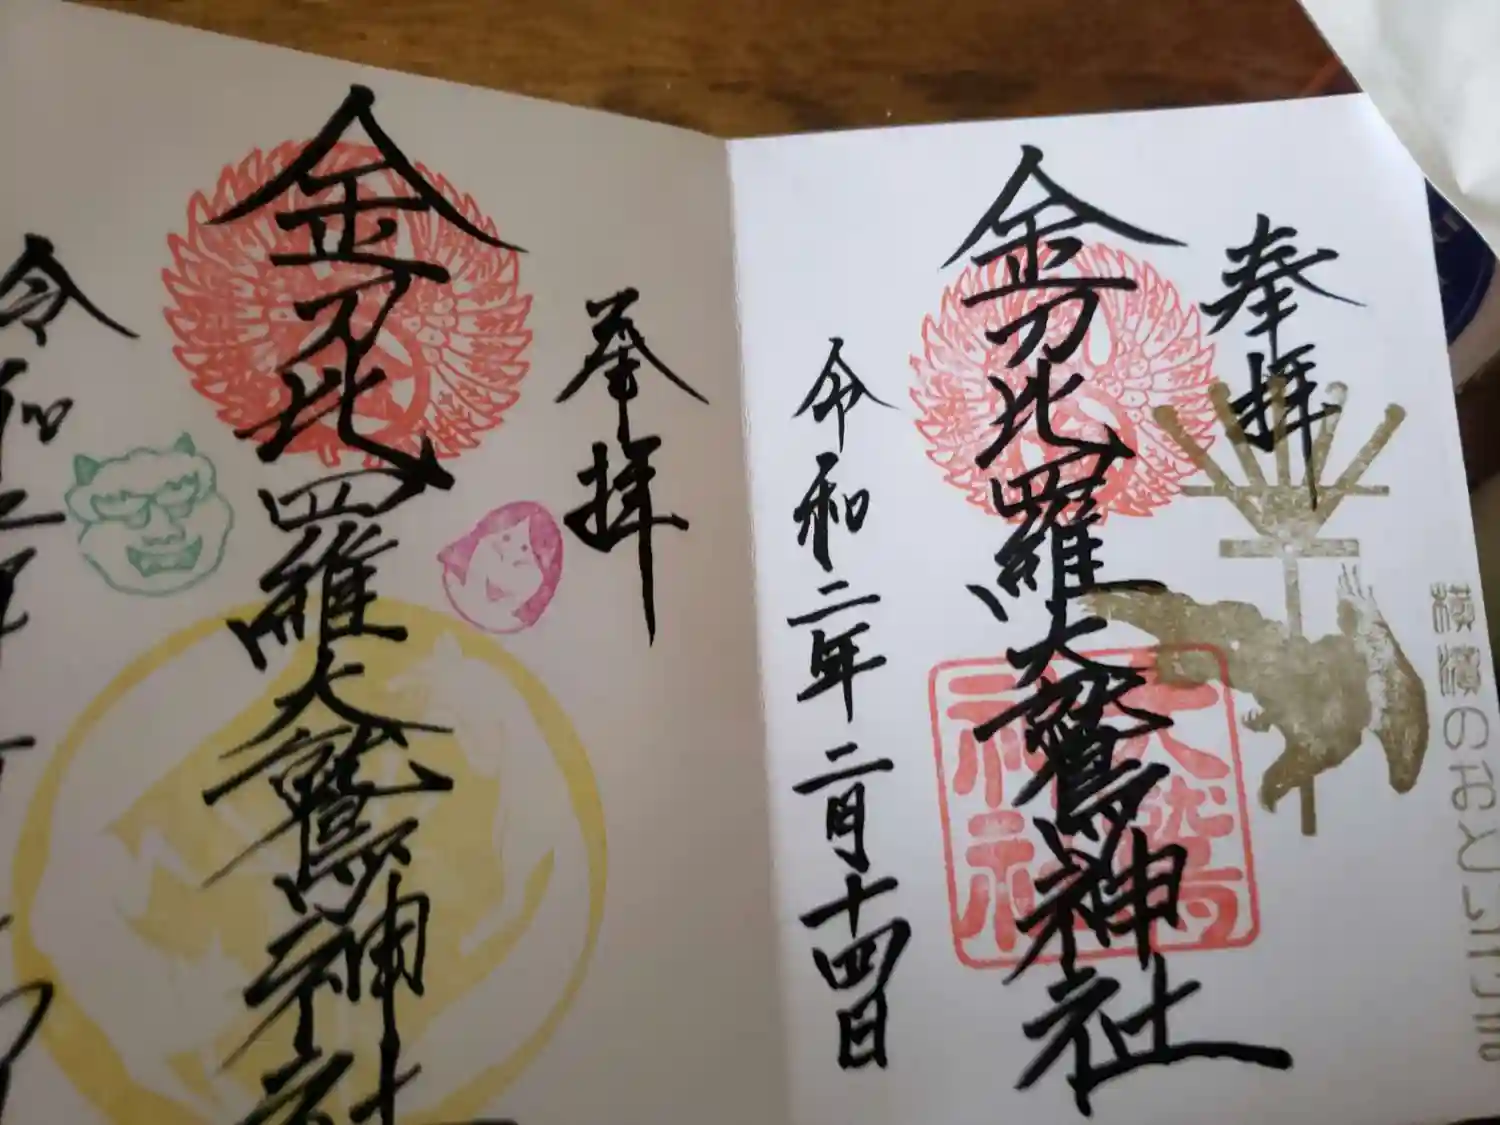 奉拝
金刀比羅大鷲神社
令和二年二月十四日
横濱のおとりさま
大鷲神社
奉拝
金刀比羅大鷲神社
令和二年